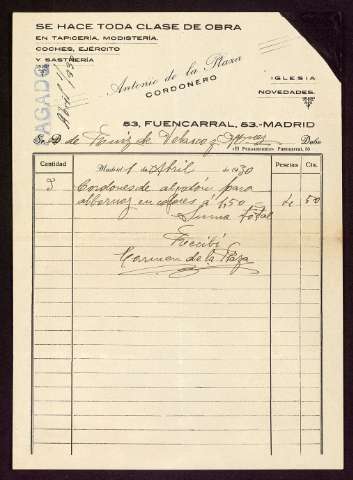 SE HACE TODA CLASE DE OBRA
EN TAPICERÍA, MODISTERÍA,
COCHES, EJÉRCITO
Y SASTRERÍA
PAGADO
Abril 1930
Antonio de la Plaza
CORDONERO
IGLESIA
NOVEDADES
53, FUENCARRAL, 53.-MADRID
Sr. D. de Ruiz de Velasco y Debe
Cantidad Madrid 1 de Abril de 1930 Pesetas Cts.
3 Cordones de algodón para
albornoz en colores á 1'50 50
Suma total
Recibí
Carmen de la Plaza